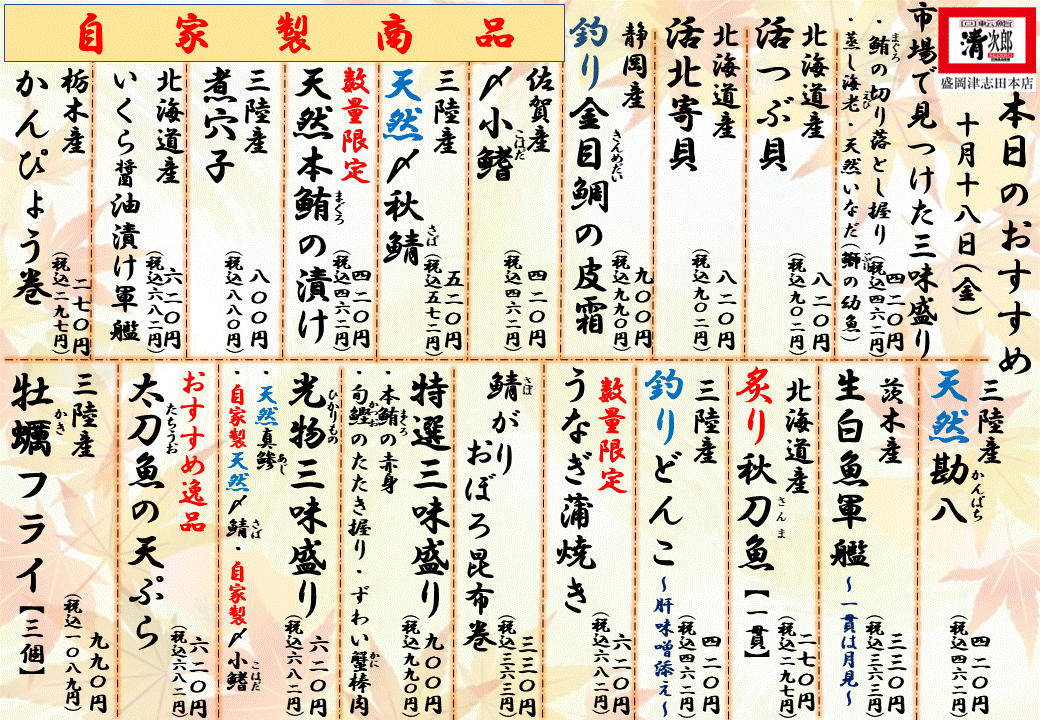 回転鮨
清次郎
盛岡津志田本店
本日のおすすめ
十月十八日(金)
市場で見つけた三味盛り
・鮪の切り落とし握り
まぐろ
・蒸し海老・天然いなだ(鰤の幼魚)
えび
ぶり
四二〇円
(税込四六二円)
北海道産
活つぶ貝
八二〇円
(税込九〇二円)
北海道産
活北寄貝
八二〇円
(税込九〇二円)
静岡産
釣り金目鯛の皮霜
きんめだい
九〇〇円
(税込九九〇円)
自家製商品
佐賀産
〆小鰭
こはだ
四二〇円
(税込四六二円)
三陸産
天然〆秋鯖
さば
五二〇円
(税込五七二円)
数量限定
天然本鮪の漬け
まぐろ
四二〇円
(税込四六二円)
三陸産
煮穴子
八〇〇円
(税込八八〇円)
北海道産
いくら醤油漬け軍艦
六二〇円
(税込六八二円)
栃木産
かんぴょう巻
二七〇円
(税込二九七円)
三陸産
天然勘八
かんぱち
四二〇円
(税込四六二円)
茨木産
生白魚軍艦
~一貫は月見~
三三〇円
(税込三六三円)
北海道産
炙り秋刀魚【一貫】
さんま
二七〇円
(税込二九七円)
三陸産
釣りどんこ
~肝味噌添え~
四二〇円
(税込四六二円)
数量限定
うなぎ蒲焼き
六二〇円
(税込六八二円)
鯖がり
さば
おぼろ昆布巻
三三〇円
(税込三六三円)
特選三味盛り
・本鮪の赤身
まぐろ
・旬鰹のたたき握り・ずわい蟹棒肉
かつお
かに
九〇〇円
(税込九九〇円)
光物三味盛り
ひかりもの
・天然真鯵
あじ
・自家製天然〆鯖・自家製〆小鰭
さば
こはだ
六二〇円
(税込六八二円)
おすすめ逸品
太刀魚の天ぷら
たちうお
六二〇円
(税込六八二円)
三陸産
牡蠣フライ【三個】
かき
九九〇円
(税込一〇八九円)